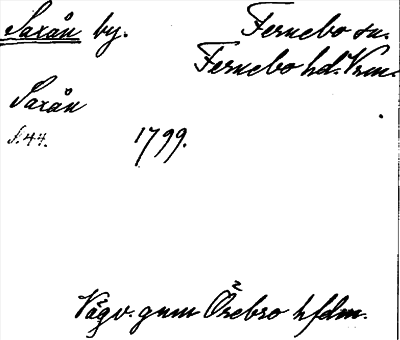 Saxån by. Fernebo sn.
Fernebo hd. Vrm.
Saxån
s. 44. 1799.
Vägv. gnm Örebro hfdm.